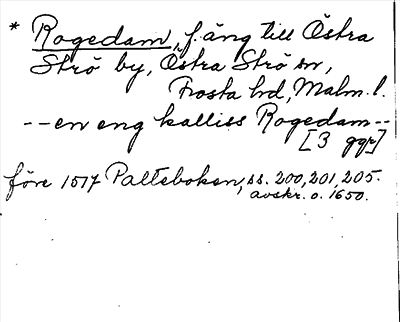 * Rogedam, f. äng till Östra
Strö by, Östra Strö sn,
Frosta hd, Malm. l.
--en eng kalliss Rogedam--
[3 ggr]
före 1517 Palteboken, ss. 200, 201, 205.
avskr. o. 1650.